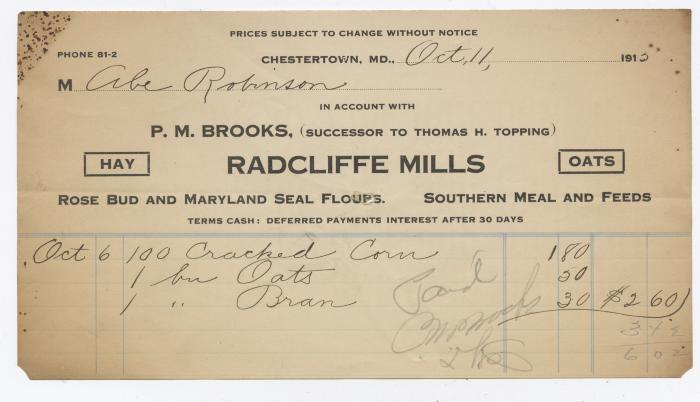 PRICES SUBJECT TO CHANGE WITHOUT NOTICE
PHONE 81-2
CHESTERTOWN, MD., Oct, 11, 1913
M Abe Robinson
IN ACCOUNT WITH
P. M. BROOKS, (SUCCESSOR TO THOMAS H. TOPPING)
HAY RADCLIFFE MILLS OATS
ROSE BUD AND MARYLAND SEAL FLOURS. SOUTHERN MEAL AND FEEDS
TERMS CASH: DEFERRED PAYMENTS INTEREST AFTER 30 DAYS
Oct 6 100 Cracked Corn 180
1 bu Oats 50
1 " Bran 30 $2 60
Paid
3 42
6 02